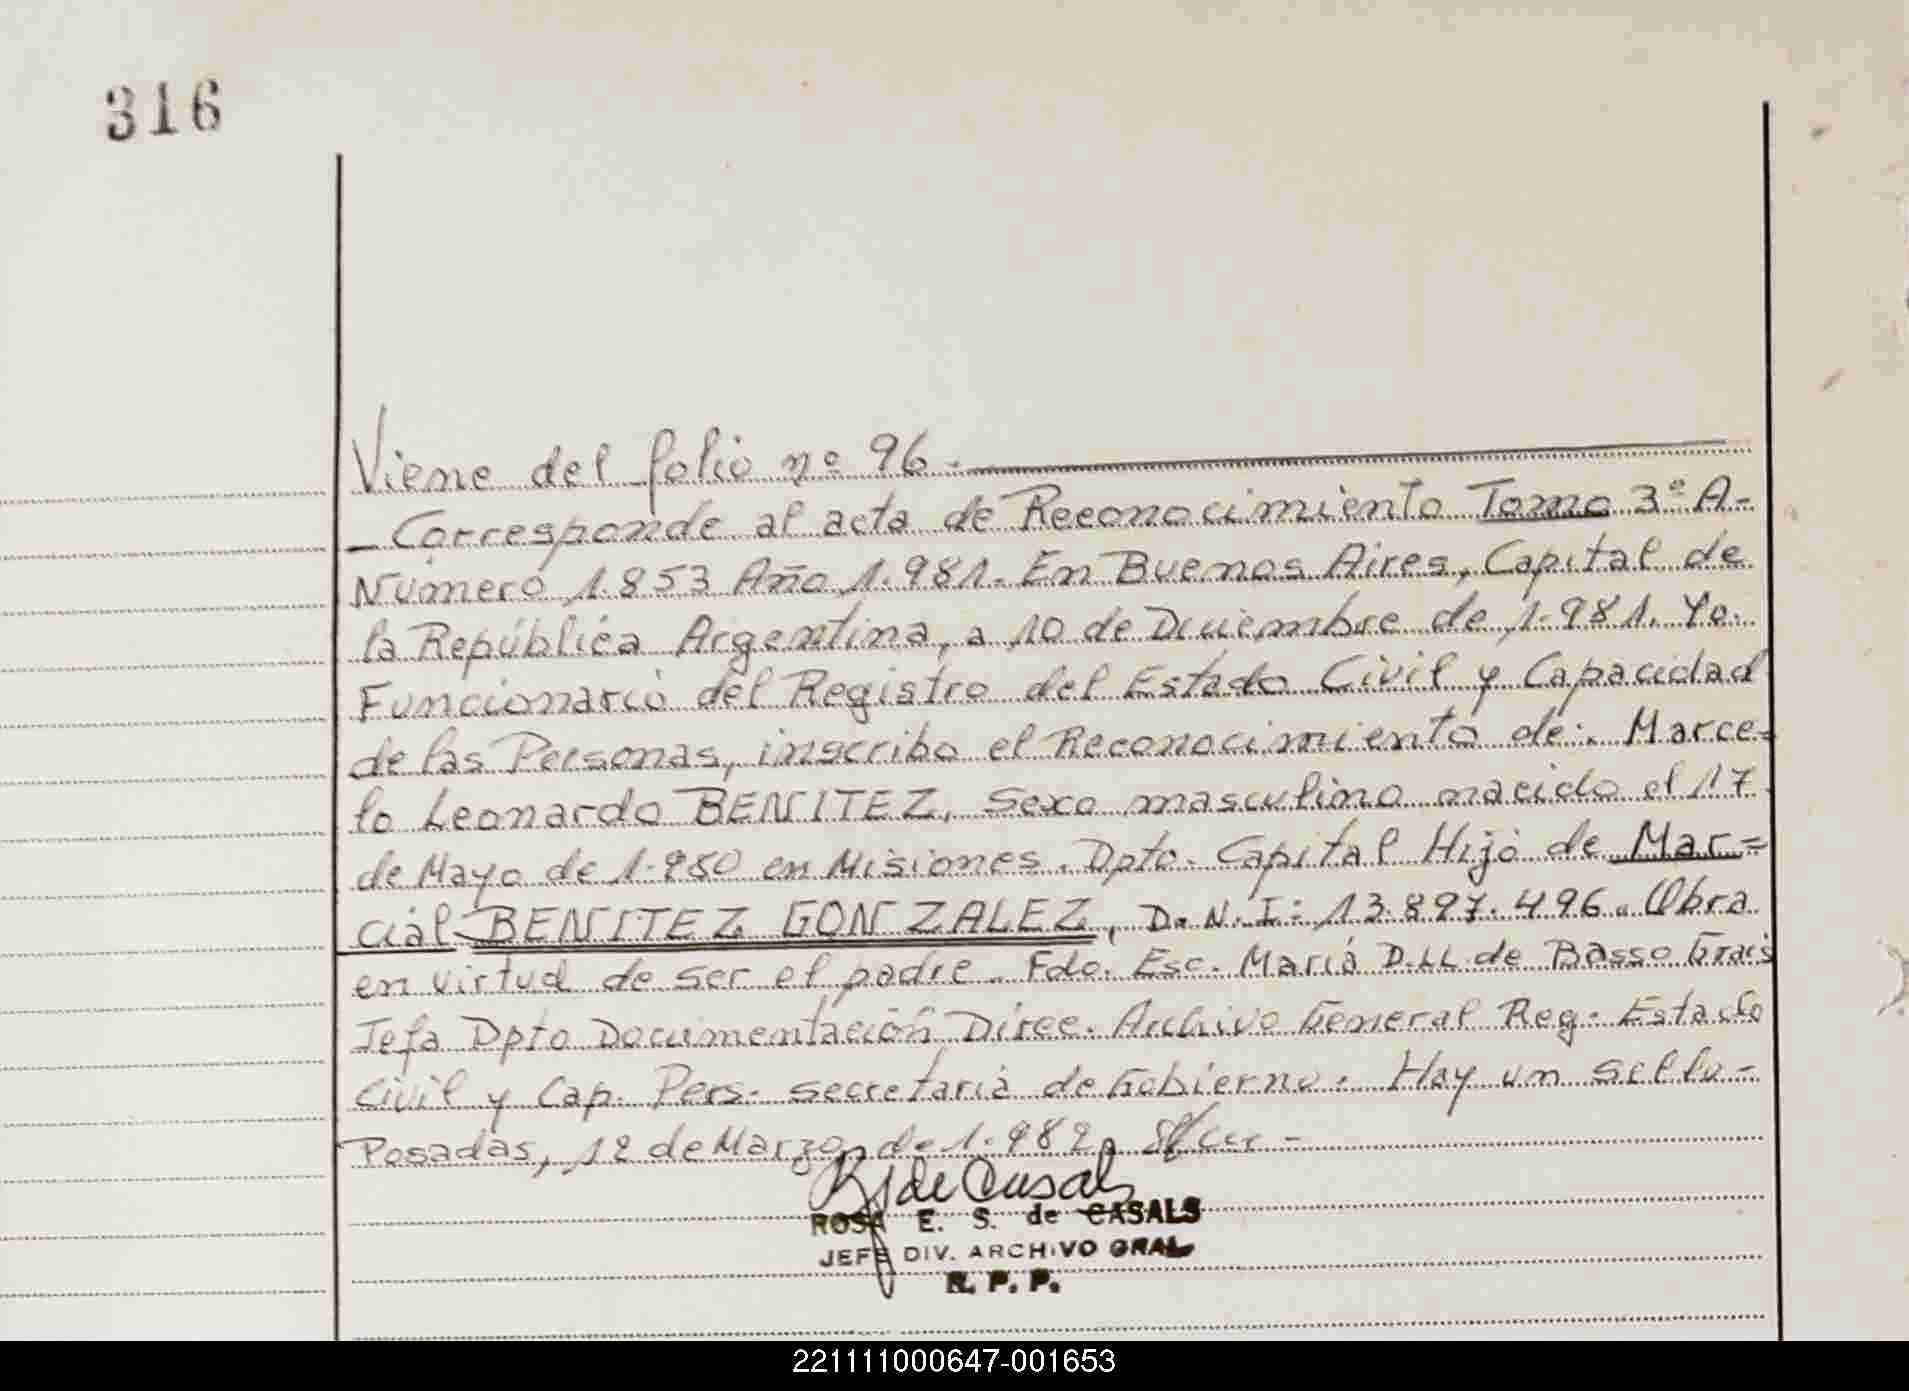 316
Viene del folio nº 96.
_Corresponde al acta de Reconocimiento Tomo 3º A-
Número 1.853 Año 1.981. En Buenos Aires, Capital de
la República Argentina, a 10 de Diciembre de 1.981. Yo.
Funcionario del Registro del Estado Civil y Capacidad
de las Personas, inscribo el Reconocimiento de: Marce=
lo Leonardo BENITEZ, Sexo masculino nacido el 17
de Mayo de 1.980 en Misiones. Dpto. Capital Hijo de Mar=
cial BENITEZ GONZALEZ, D.N.I: 13.897.496. Obra
en virtud de ser el padre. Fdo. Esc. María D.LL de Basso
Jefa Dpto Documentación Direc. Archivo General Reg. Estado
Civil y Cap. Pers. secretaria de Gobierno. Hay un sello-
Posadas, 12 de Marzo de 1.982.
R de Casals
ROSA E. S. de CASALS
JEFE DIV. ARCHIVO GRAL
R. P. P.
221111000647-001653